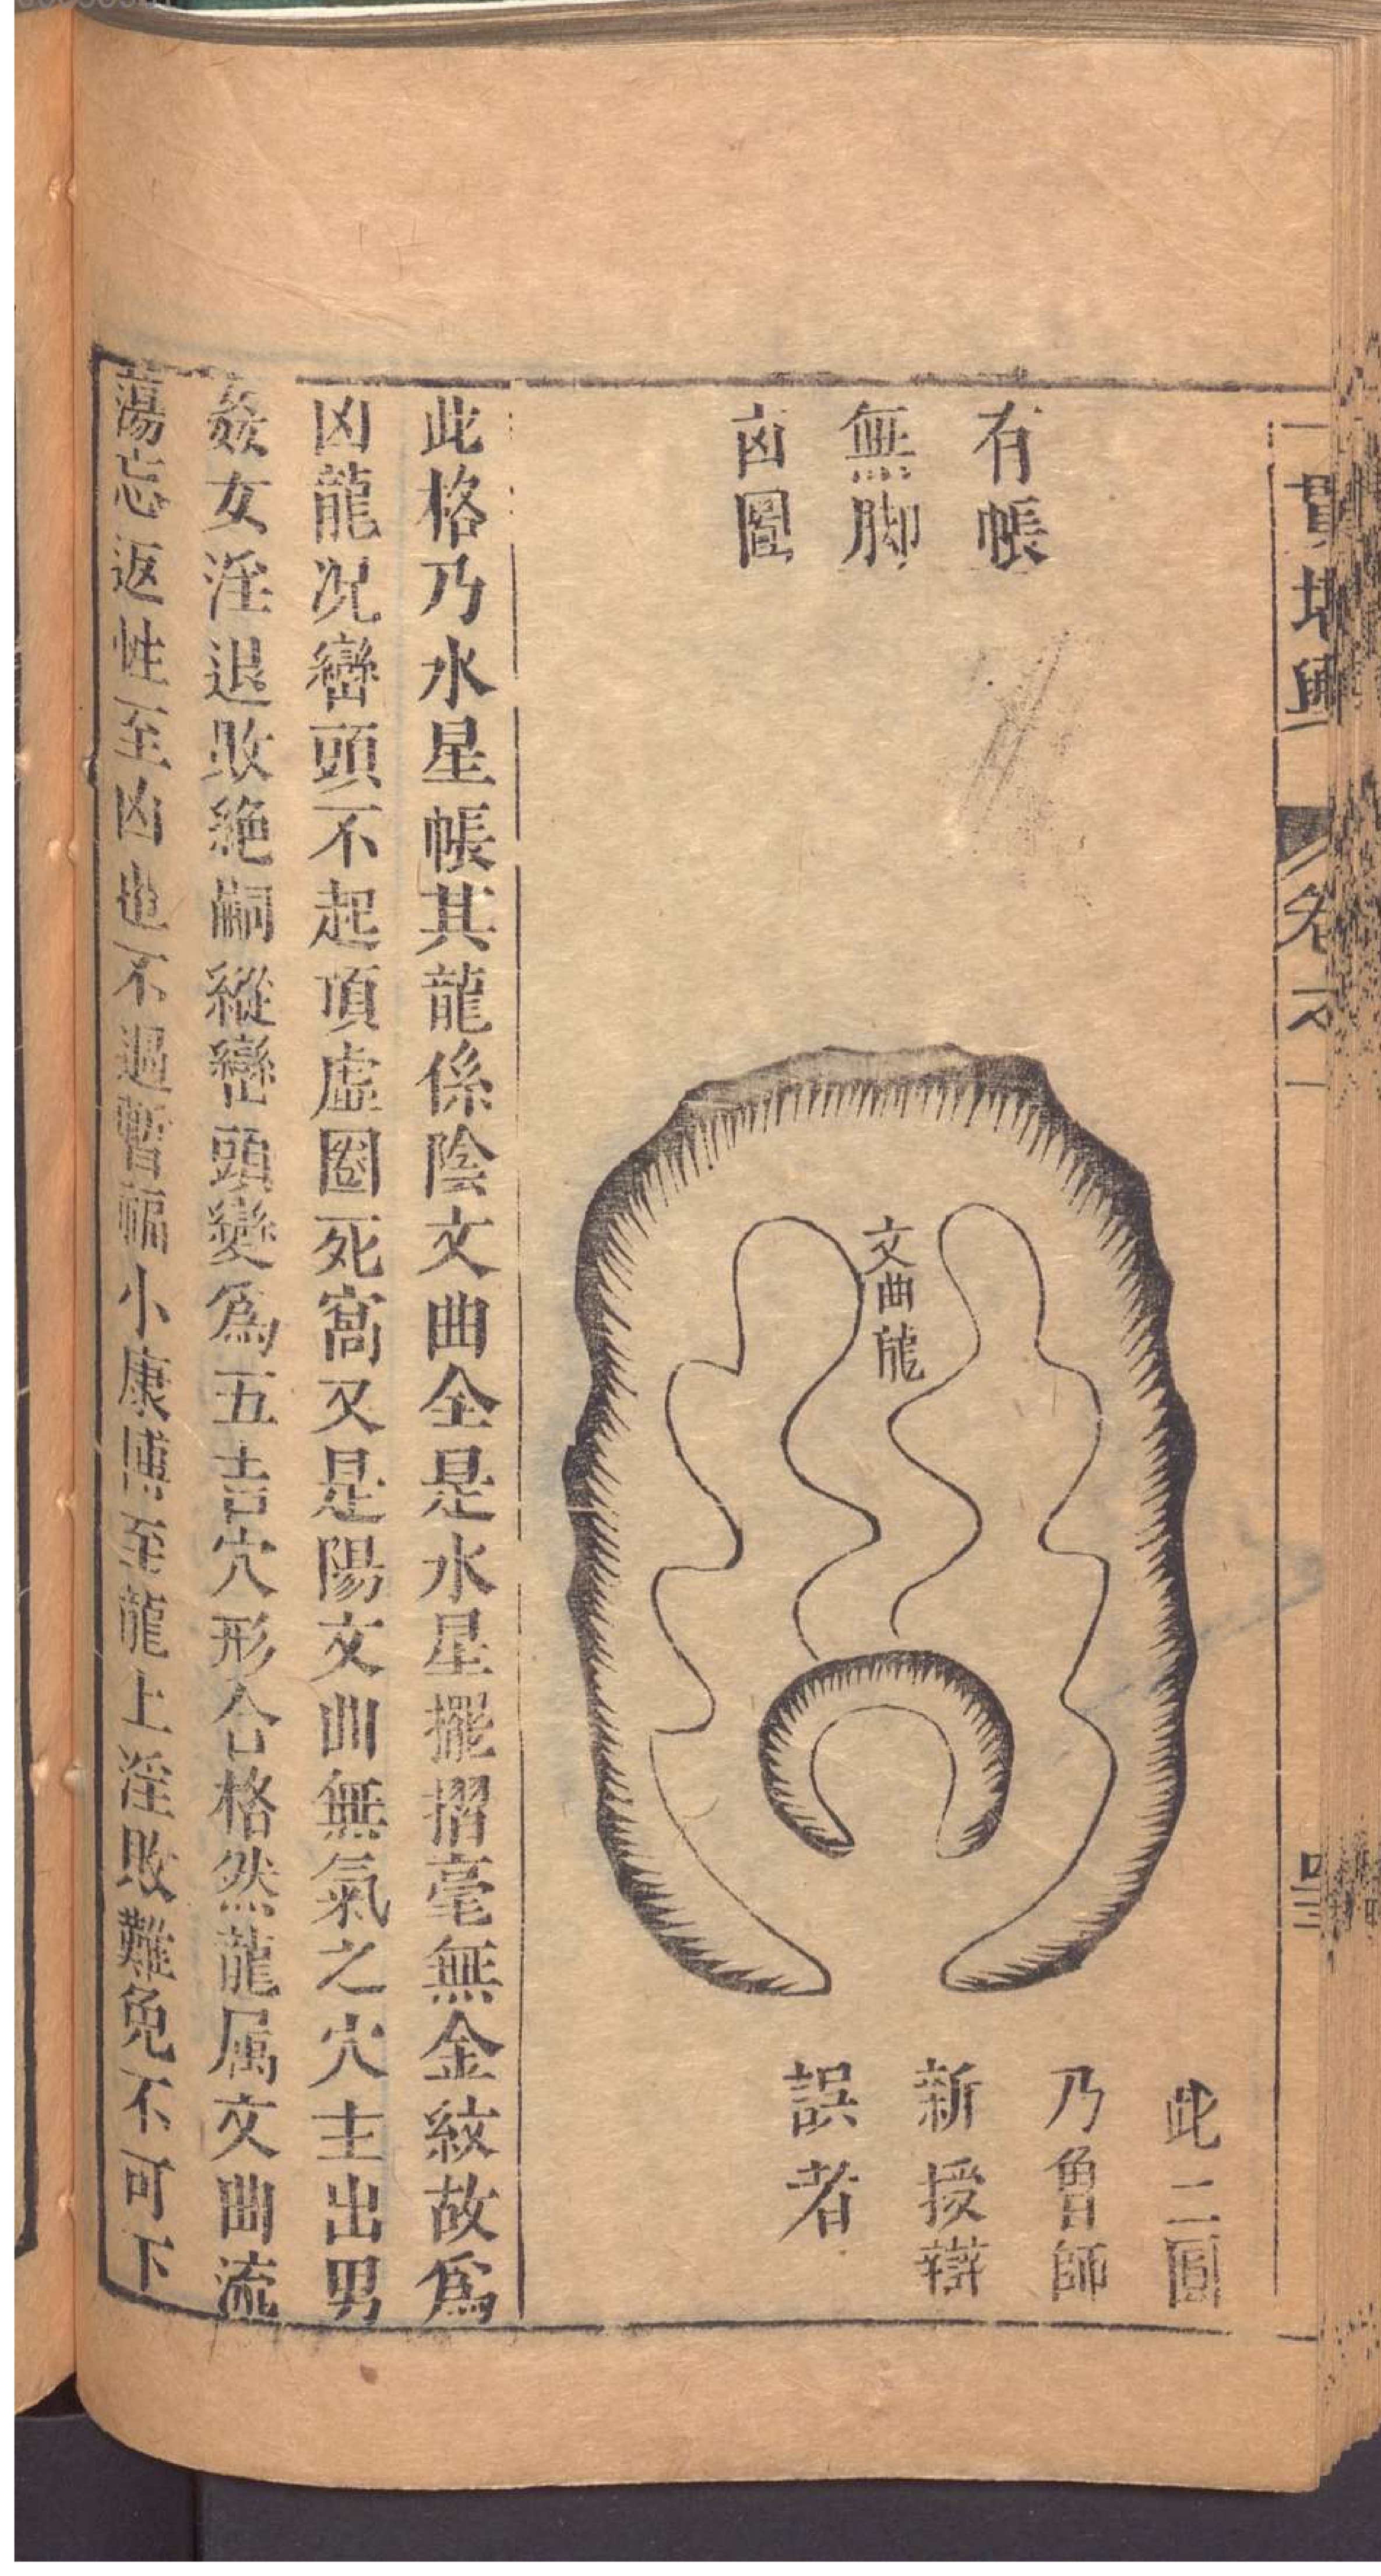 一貫堪輿
卷六
有帳
無脚
凶圖
文曲龍
此二圖
乃魯師
新授辯
誤者
此格乃水星帳其龍係陰文曲全是水星擺摺毫無金紋故爲
凶龍况巒頭不起頂虛圈死窩又是陽文曲無氣之穴主出男
姦女淫退敗絶嗣縱巒頭變爲五吉穴形合格然龍属文曲流
蕩忘返性至凶也不過暫福小康博至龍上淫敗難免不可下